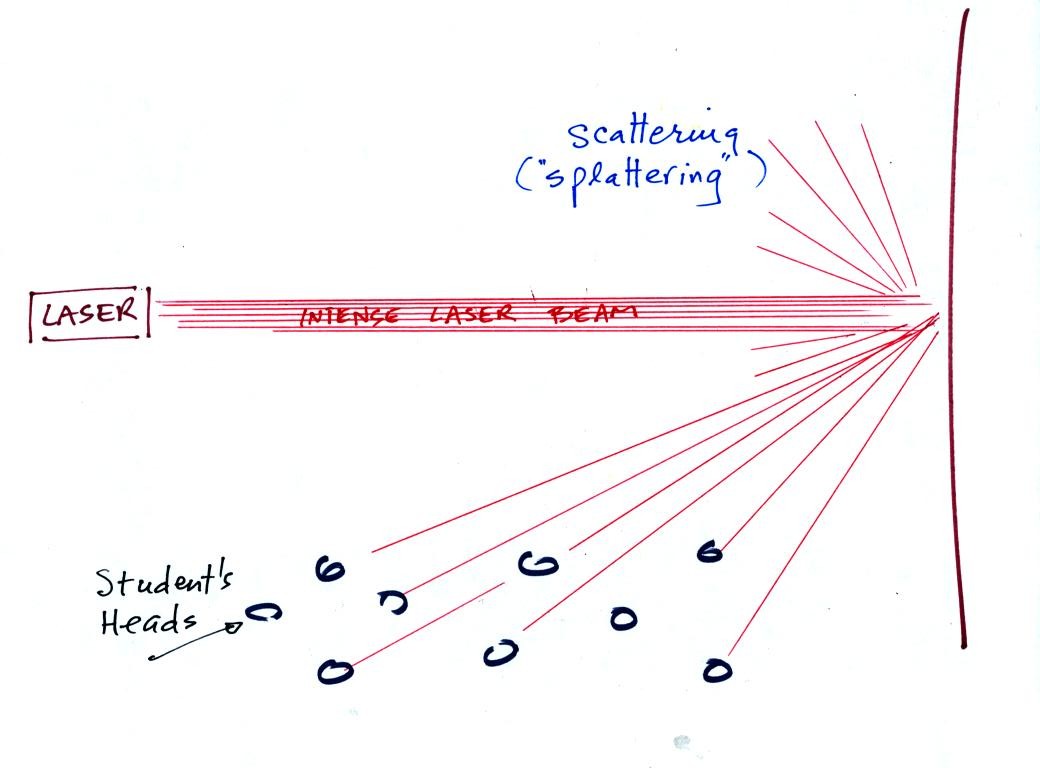 scattering
("splattering")
LASER
INTENSE LASER BEAM
Student's
Heads